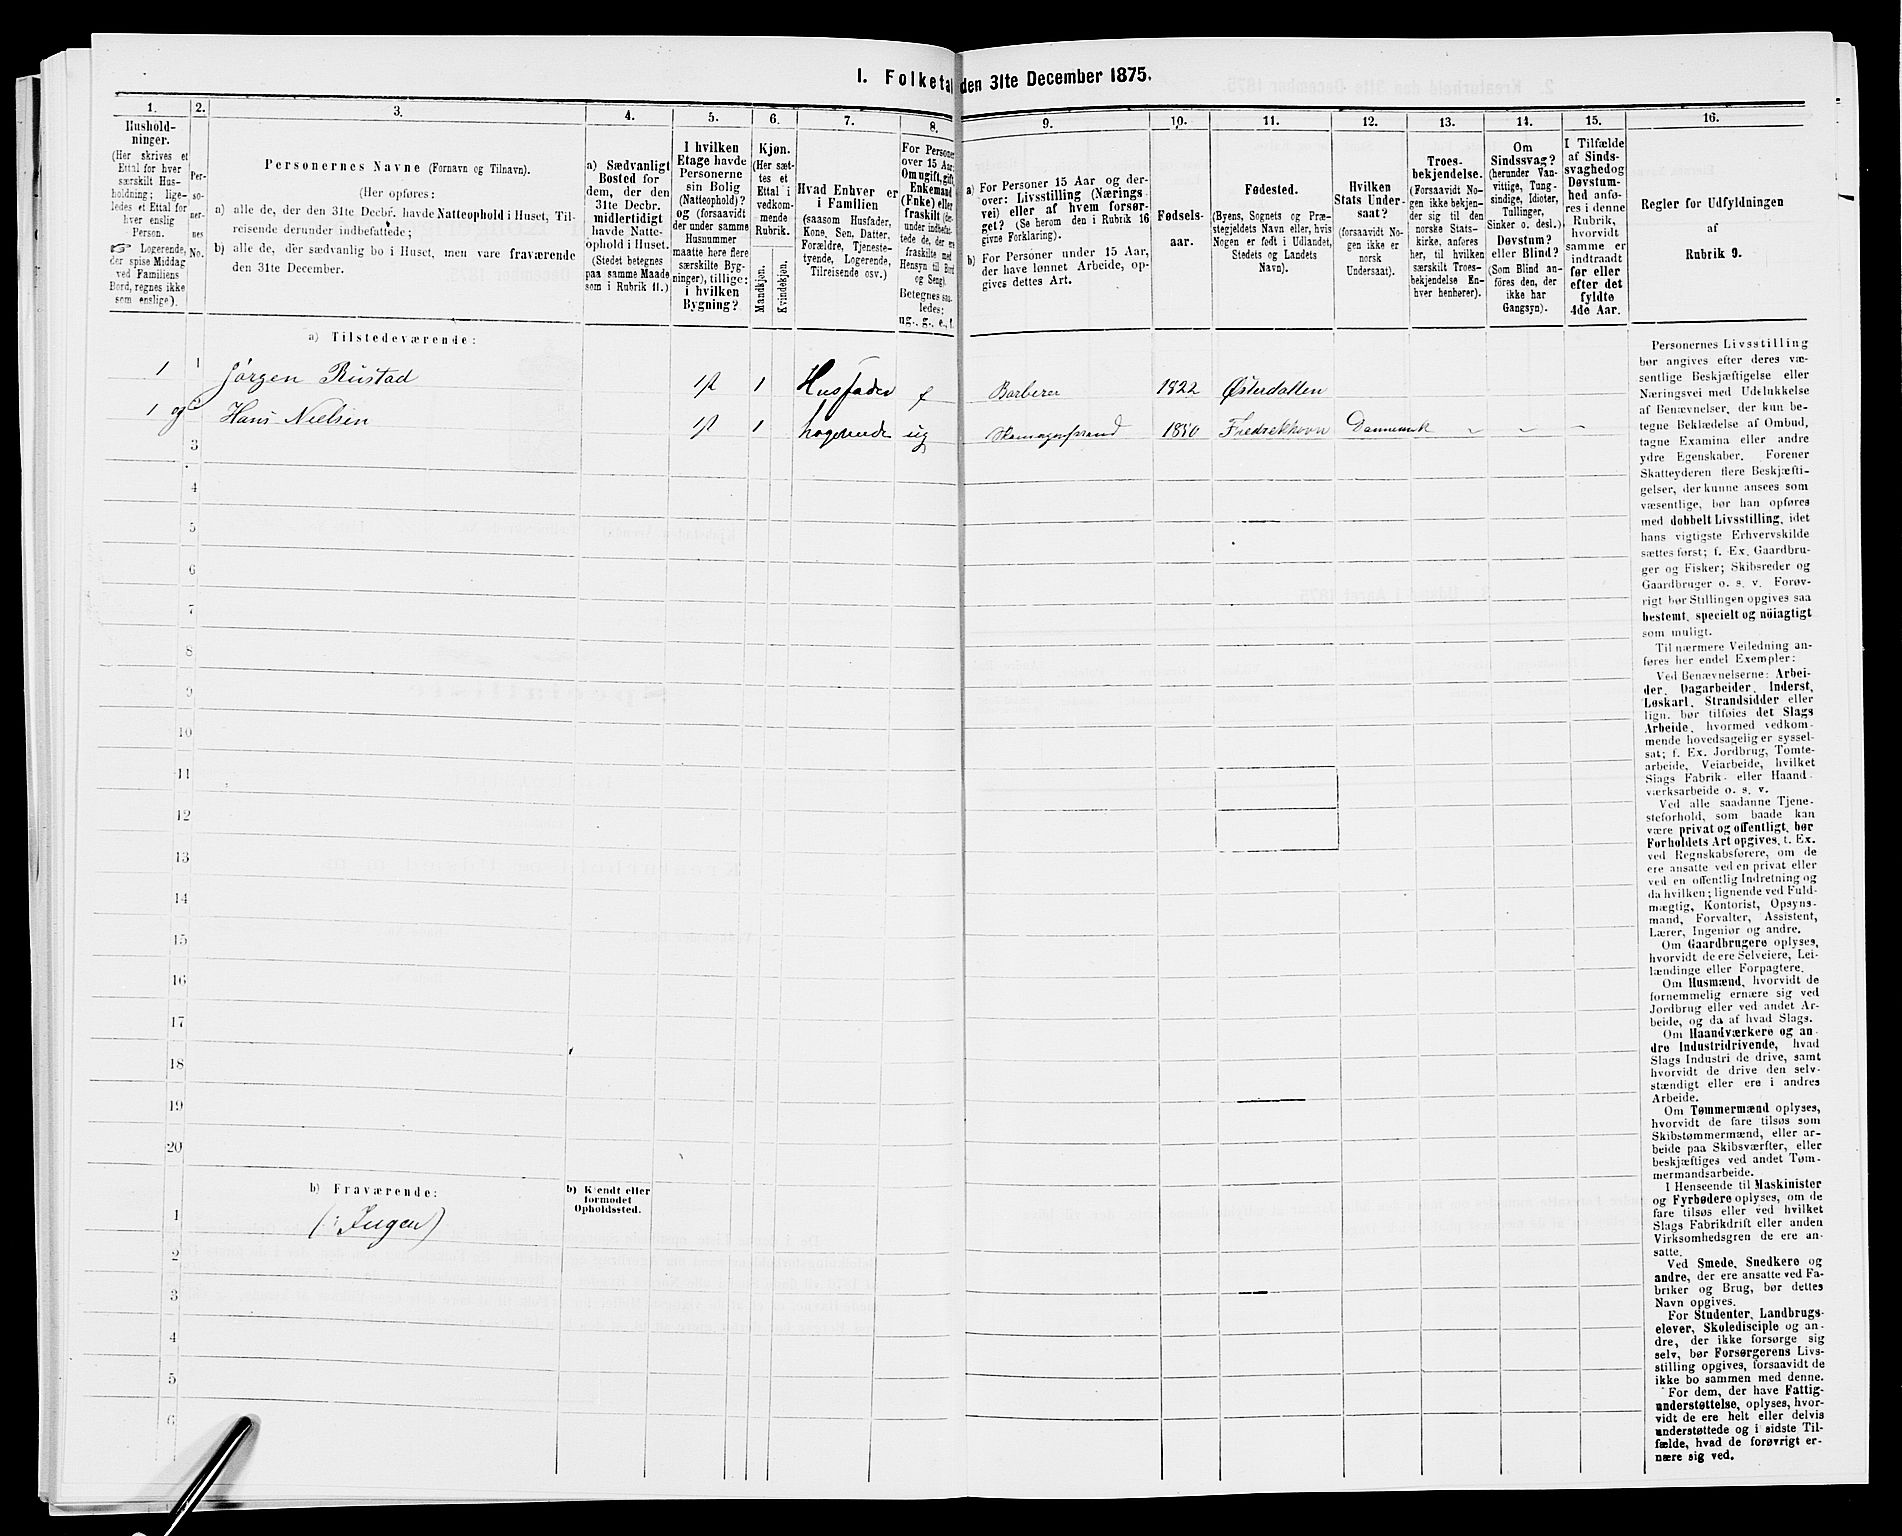 I. Folketal den 31te December 1875.
1. 2. 3. 4. 5. 6. 7. 8. 9. 10. 11. 12. 13. 14. 15. 16.
Hushold-
ninger.
(Her skrives et
Ettal for hver
særskilt Hus-
holdning; lige-
ledes et Ettal for
hver enslig
Person.
☞ Logerende,
der spise Middag
ved Familiens
Bord, regnes ikke
som enslige).
Per-
so-
ner-
nes
No.
Personernes Navne (Fornavn og Tilnavn).
(Her opføres:
a) alle de, der den 31te Decbr. havde Natteophold i Huset, Til-
reisende derunder indbefattede;
b) alle de, der sædvanlig bo i Huset, men vare fraværende
den 31te December.
a) Sædvanligt
Bosted for
dem, der den
31te Decbr.
midlertidigt
havde Natte-
ophold i Huset.
(Stedet betegnes
paa samme Maade
som i Rubrik 11.)
I hvilken
Etage havde
Personerne
sin Bolig
(Natteophold)?
og (forsaavidt
der under samme
Husnummer
maatte høre flere
særskilte Byg-
ninger), tillige:
i hvilken
Bygning?
Kjøn.
(Her sæt-
tes et
Ettal i
vedkom-
mende
Rubrik.
Mandkjøn.
Kvindekjøn.
Hvad Enhver er
i Familien
(saasom Husfader,
Kone, Søn, Datter,
Forældre, Tjeneste-
tyende, Logerende,
Tilreisende osv.)
For Personer
over 15 Aar:
Om ugift, gift,
Enkemand
(Enke) eller
fraskilt (der-
under indbefat-
tede de, der ere
fraskilte med
Hensyn til Bord
og Seng).
Betegnes saa-
ledes:
ug., g., e., f.
a) For Personer 15 Aar og der-
over: Livsstilling (Nærings-
vei) eller af hvem forsør-
get? (Se herom den i Rubrik 16
givne Forklaring).
b) For Personer under 15 Aar,
der have lønnet Arbeide, op-
gives dettes Art.
Fødsels-
aar.
Fødested.
(Byens, Sognets og Præ-
stegjeldets Navn eller, hvis
Nogen er født i Udlandet,
Stedets og Landets
Navn).
Hvilken
Stats Under-
saat?
(forsaavidt No-
gen ikke er
norsk
Undersaat).
Troes-
bekjendelse.
(Forsaavidt No-
gen ikke bekjen-
der sig til den
norske Stats-
kirke, anføres
her, til hvilken
særskilt Troes-
bekjendelse En-
hver henhører).
Om
Sindssvag?
(herunder Van-
vittige, Tung-
sindige, Idioter,
Tullinger,
Sinker o. desl.)
Døvstum?
eller Blind?
(Som Blind an-
føres den, der
ikke har
Gangsyn).
I Tilfælde
af Sinds-
svaghed og
Døvstum-
hed anfø-
res i denne
Rubrik,
hvorvidt
samme er
indtraadt
før eller
efter det
fyldte
4de Aar.
Regler for Udfyldningen
af
Rubrik 9.
a) Tilstedeværende:
1 1 Jørgen Rustad 1st 1 Husfader f Barberer 1822 Østerdallen
1 og 2 Hans Nielsen 1st 1 logerende ug 1850 Fredrekhavn Dannemark – – –
3
4
5
6
7
8
9
10
11
12
13
14
15
16
17
18
19
20
b) Fraværende:
b) Kjendt eller
formodet
Opholdssted.
1 (: Ingen)
2
3
4
5
6
Personernes Livsstilling
bør angives efter deres væ-
sentlige Beskjæftigelse eller
Næringsvei med Udelukkelse
af Benævnelser, der kun be-
tegne Beklædelse af Ombud,
tagne Examina eller andre
ydre Egenskaber. Forener
Skatteyderen flere Beskjæfti-
gelser, der kunne ansees som
væsentlige, bør han opføres
med dobbelt Livsstilling, idet
hans vigtigste Erhvervskilde
sættes først; f. Ex. Gaardbru-
ger og Fisker; Skibsreder og
Gaardbruger o. s. v. Forøv-
rigt bør Stillingen opgives saa
bestemt, specielt og nöiagtigt
som muligt.
Til nærmere Veiledning an-
føres her endel Exempler:
Ved Benævnelserne: Arbei-
der, Dagarbeider, Inderst,
Løskarl, Strandsidder eller
lign. bør tilføies det Slags
Arbeide, hvormed vedkom-
mende hovedsagelig er syssel-
sat; f. Ex. Jordbrug, Tomte-
arbeide, Veiarbeide, hvilket
Slags Fabrik- eller Haand-
værksarbeide o. s. v.
Ved alle saadanne Tjene-
steforhold, som baade kan
være privat og offentligt, bør
Forholdets Art opgives, f. Ex.
ved Regnskabsførere, om de
ere ansatte ved en privat eller
ved en offentlig Indretning og
da hvilken; lignende ved Fuld-
mægtig, Kontorist, Opsyns-
mand, Forvalter, Assistent,
Lærer, Ingeniør og andre.
Om Gaardbrugere oplyses,
hvorvidt de ere Selveiere, Lei-
lændinge eller Forpagtere.
Om Husmænd, hvorvidt de
fornemmelig ernære sig ved
Jordbrug eller ved andet Ar-
beide, og da af hvad Slags.
Om Haandværkere og an-
dre Industridrivende, hvad
Slags Industri de drive, samt
hvorvidt de drive den selv-
stændigt eller ere i andres
Arbeide.
Om Tømmermænd oplyses,
hvorvidt de fare tilsøs som
Skibstømmermænd, eller ar-
beide paa Skibsværfter, eller
beskjæftiges ved andet Tøm-
mermandsarbeide.
I Henseende til Maskinister
og Fyrbødere oplyses, om de
fare tilsøs eller ved hvilket
Slags Fabrikdrift eller anden
Virksomhedsgren de ere an-
satte.
Ved Smede, Snedkere og
andre, der ere ansatte ved Fa-
briker og Brug, bør dettes
Navn opgives.
For Studenter, Landbrugs-
elever, Skoledisciple og an-
dre, der ikke forsørge sig
selv, bør Forsørgerens Livs-
stilling opgives, forsaavidt de
ikke bo sammen med denne.
For dem, der have Fattig-
understøttelse, oplyses, hvor-
vidt de ere helt eller delvis
understøttede og i sidste Til-
fælde, hvad de forøvrigt er-
nære sig ved.